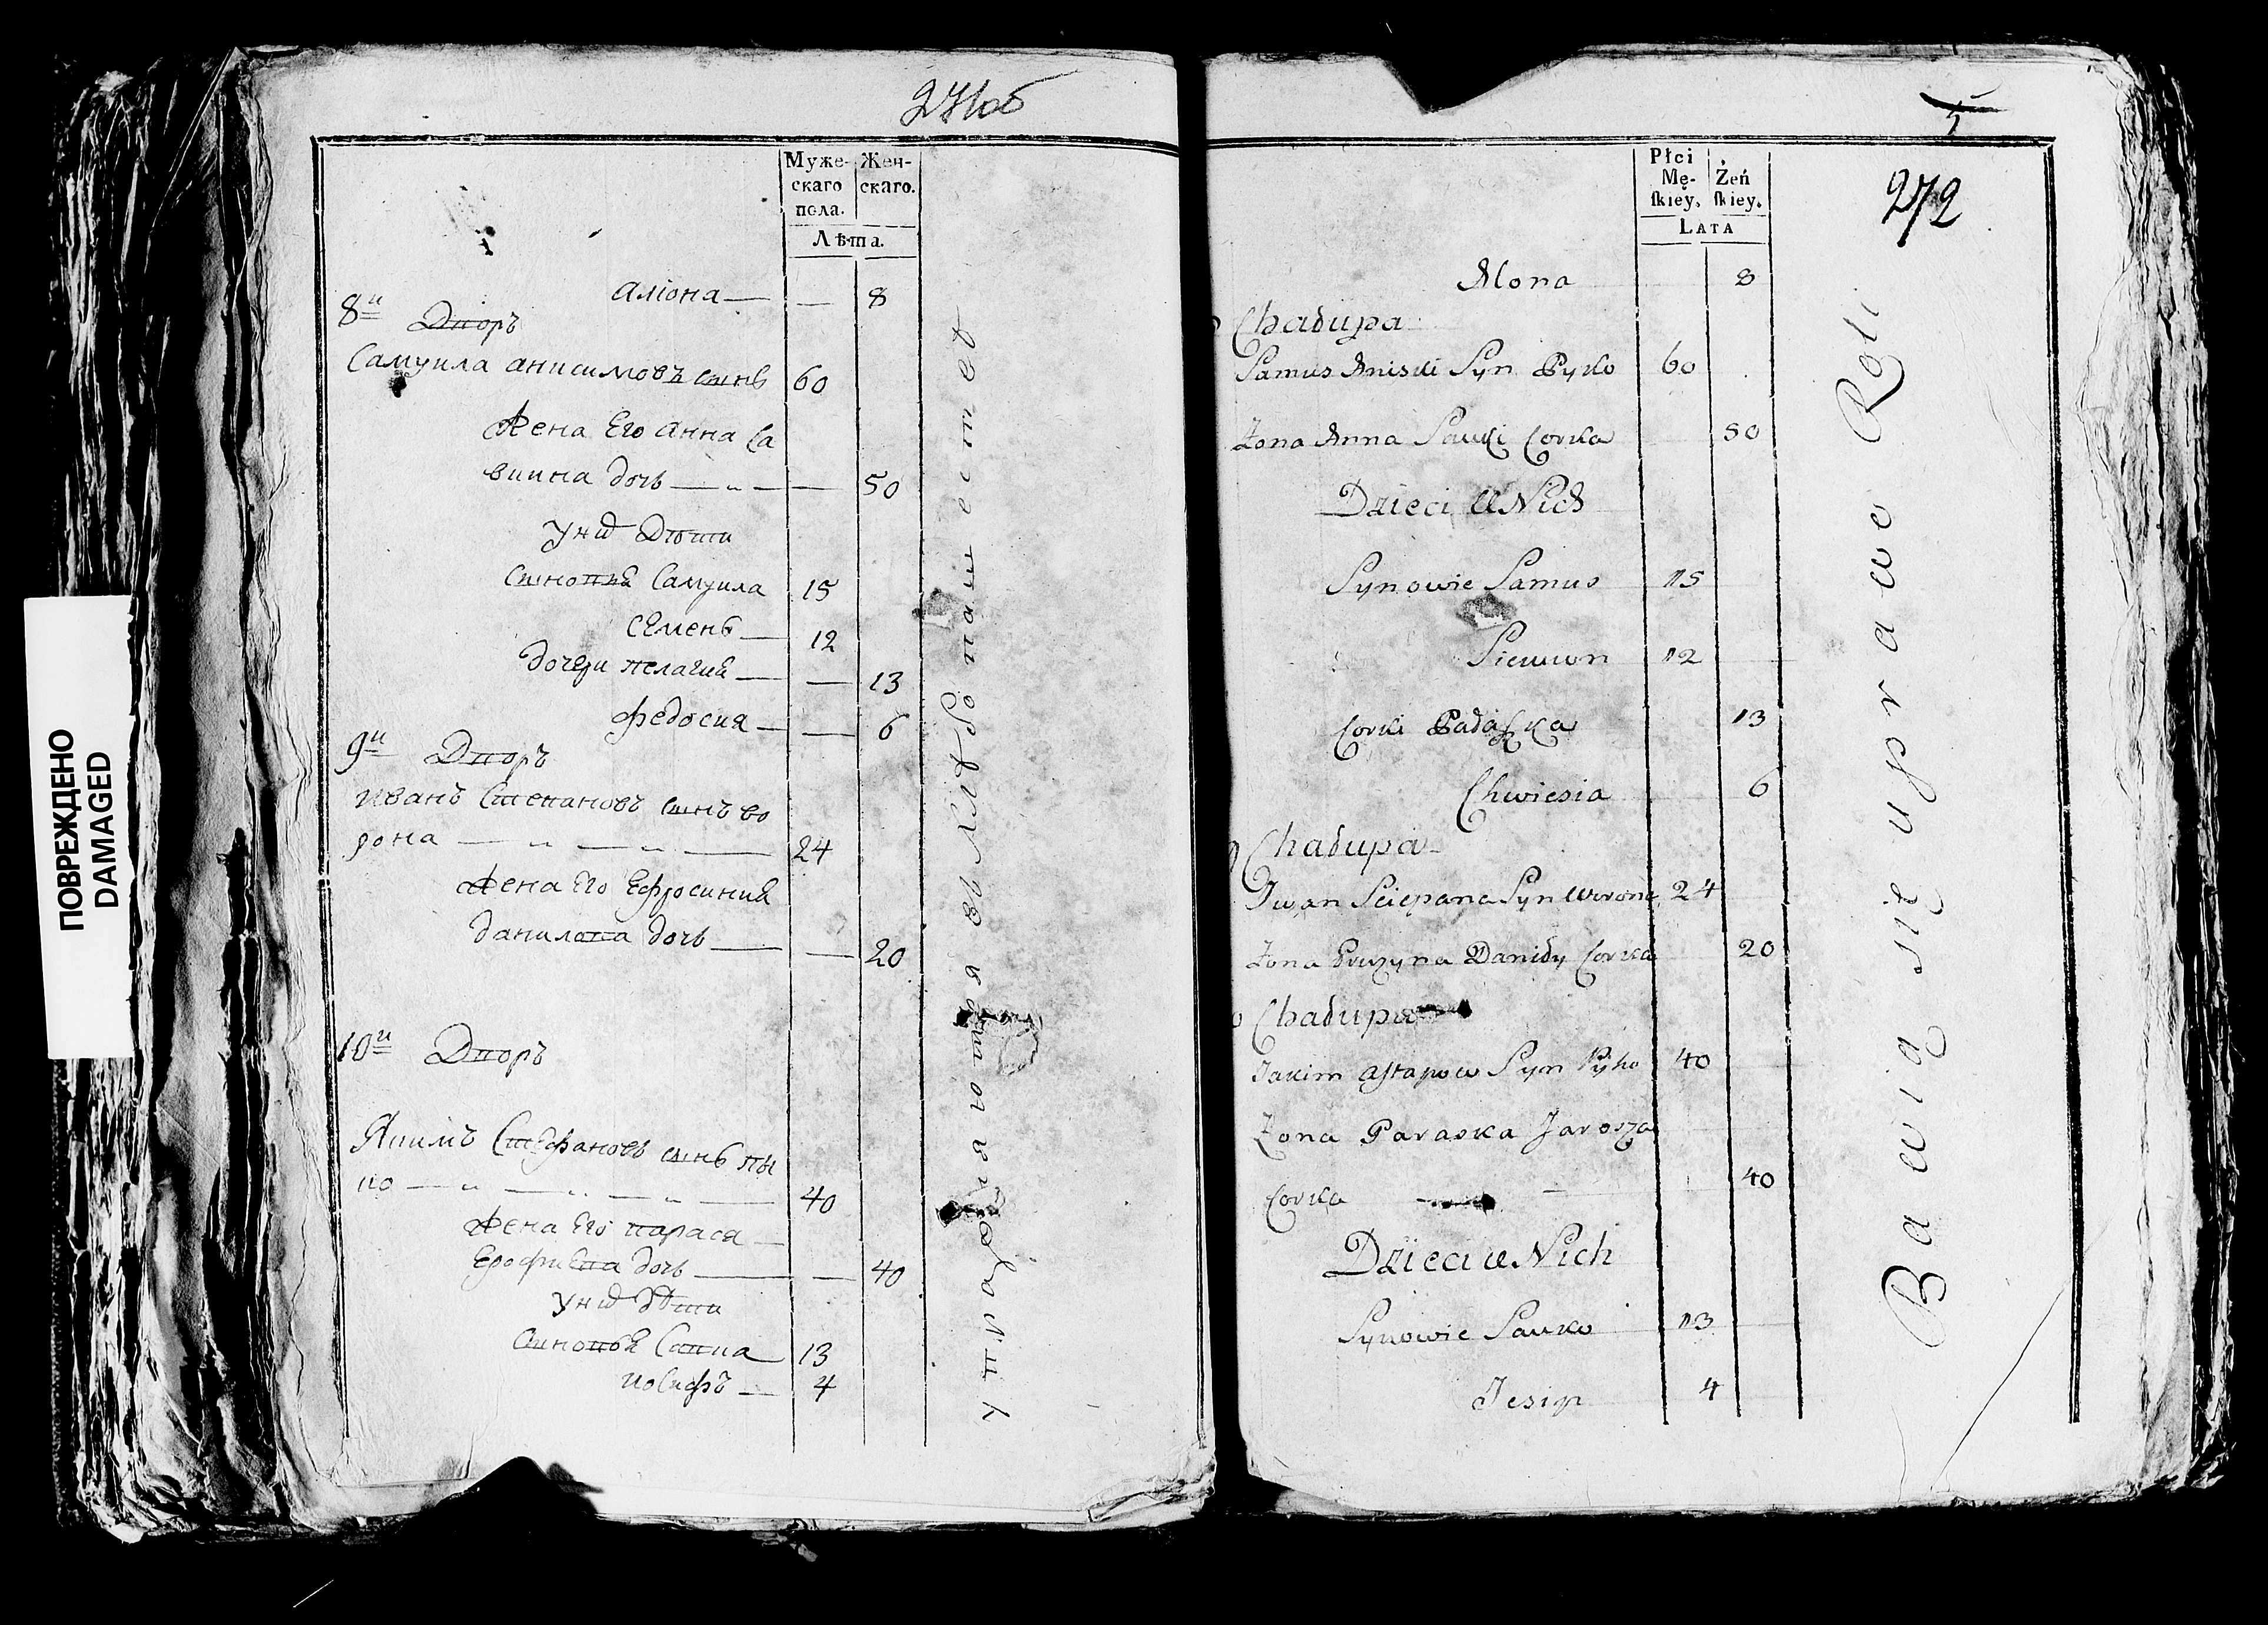 ПОВРЕЖДЕНО
DAMAGED
271об
Муже-
скаго
пола.
Жен-
скаго.
Лѣта.
аліона — — 8
8й Дворъ
Самуила анисимовъ сынъ 60
Жена Его анна Са
вина дочь — „ — — 50
у них Дѣти
Сыновья Самуила 15
Семенъ — 12
дочери пелагия — — 13
федосия — — 6
9й Дворъ
иванъ Степановъ сынъ во
рона — „ — „ — 24
Жена Его Ефросиния
данилова дочь — — 20
10й Дворъ
Якимъ Стефановъ сынъ пы
ко — „ — „ — „ — 40
Жена Его параса —
Ерофиева дочь — — 40
у них дѣти
Сыновья Савка 13
иосифъ — 4
5
272
Płci
Mę-
skiey.
Żeń
skiey.
LATA
Alona 8
Chałupa
Samus Aniski Syn Pyko 60
Zona Anna Sawki Corka 50
Dzieci u Nich
Synowie Samus 15
Siemion 12
Corki Pałaszka 13
Chwiesia 6
Chałupa
Iwan Sciepana Syn Worona 24
Zona Pruzyna Daniły Corka 20
Chałupa
Jakim Astapow Syn Pyko 40
Zona Paraska Jarosza
Corka 40
Dzieci u Nich
Synowie Sawko 13
Jesip 4
Bawią się uprawe Roli